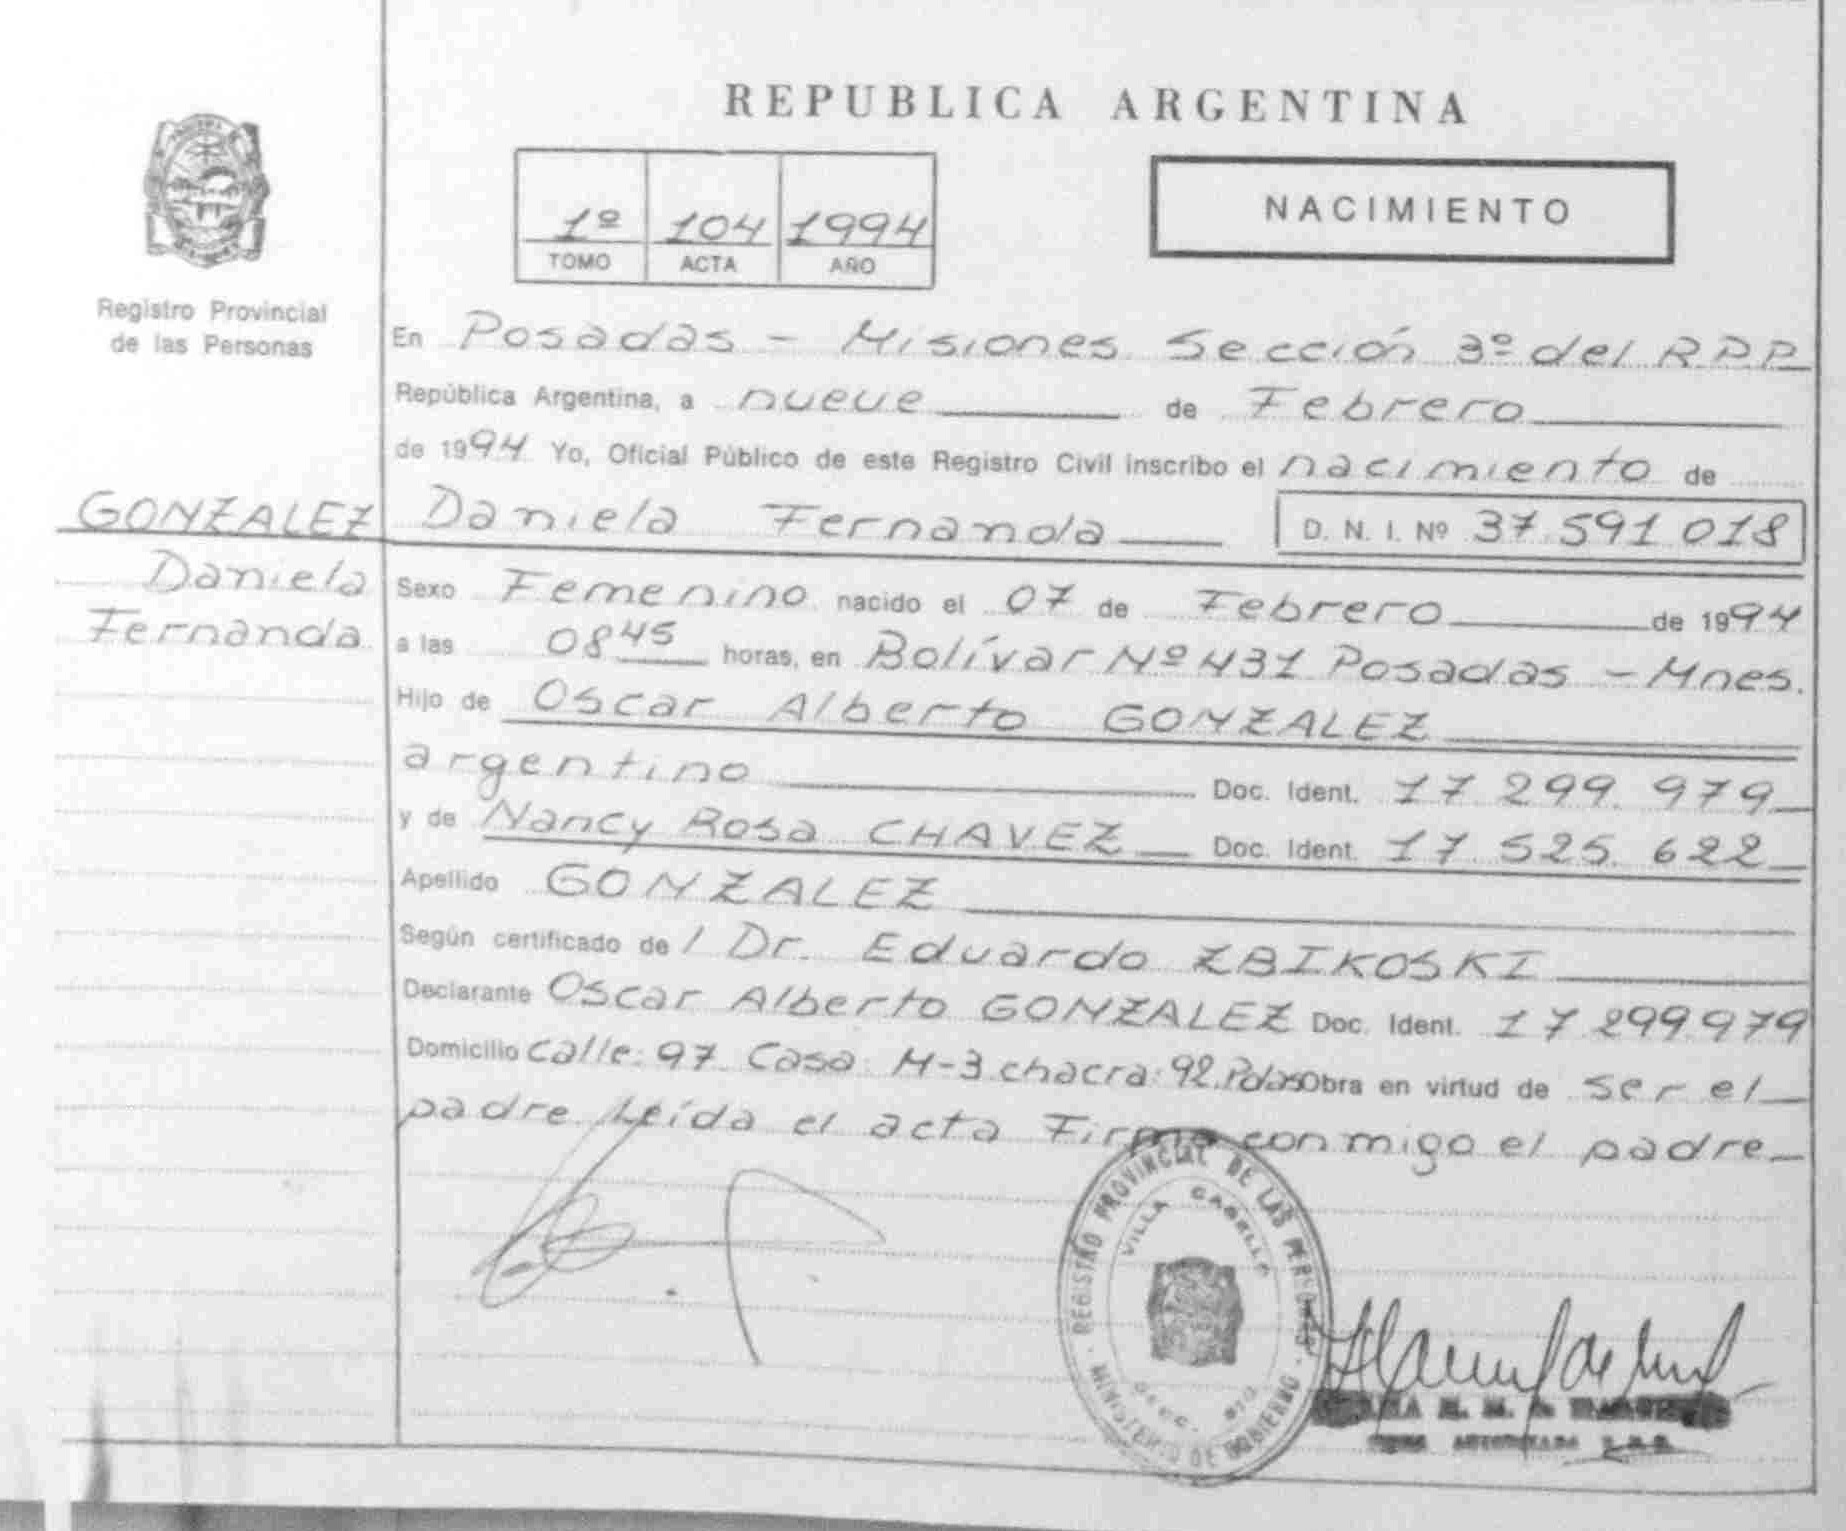 REPUBLICA ARGENTINA
1º 104 1994
TOMO ACTA AÑO
NACIMIENTO
Registro Provincial
de las Personas
En Posadas - Misiones Sección 3º del R.P.P.
República Argentina, a nueve de Febrero
de 1994 Yo, Oficial Público de este Registro Civil inscribo el nacimiento de
GONZALEZ Daniela Fernanda D. N. I. Nº 37.591.018
Daniela
Fernanda
Sexo Femenino nacido el 07 de Febrero de 1994
a las 08 45 horas, en Bolívar Nº 431 Posadas - Mnes.
Hijo de Oscar Alberto GONZALEZ
argentino Doc. Ident. 17.299.979
y de Nancy Rosa CHAVEZ Doc. Ident. 17.525.622
Apellido GONZALEZ
Según certificado de / Dr. Eduardo ZBIKOSKI
Declarante Oscar Alberto GONZALEZ Doc. Ident. 17.299.979
Domicilio calle: 97 Casa: M-3 chacra: 92. Pdas Obra en virtud de ser el
padre Leída el acta Firma conmigo el padre
REGISTRO PROVINCIAL DE LAS PERSONAS
VILLA CABELLO
MINISTERIO DE GOBIERNO